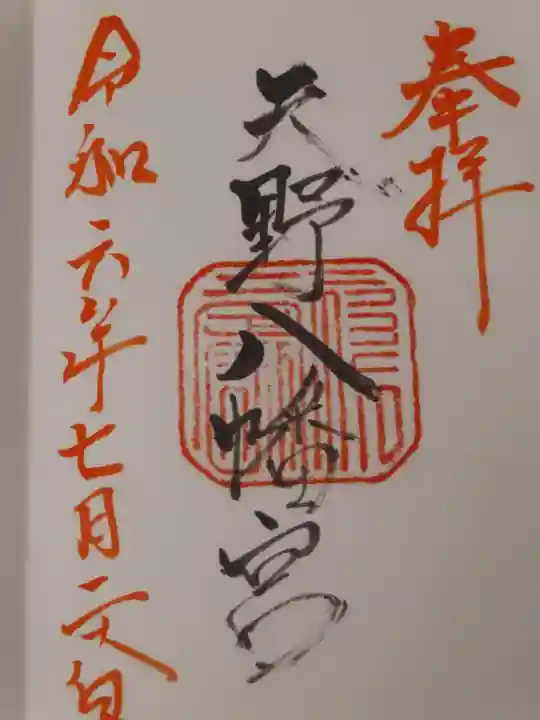 奉拝
矢野八幡宮
令和六年七月
日